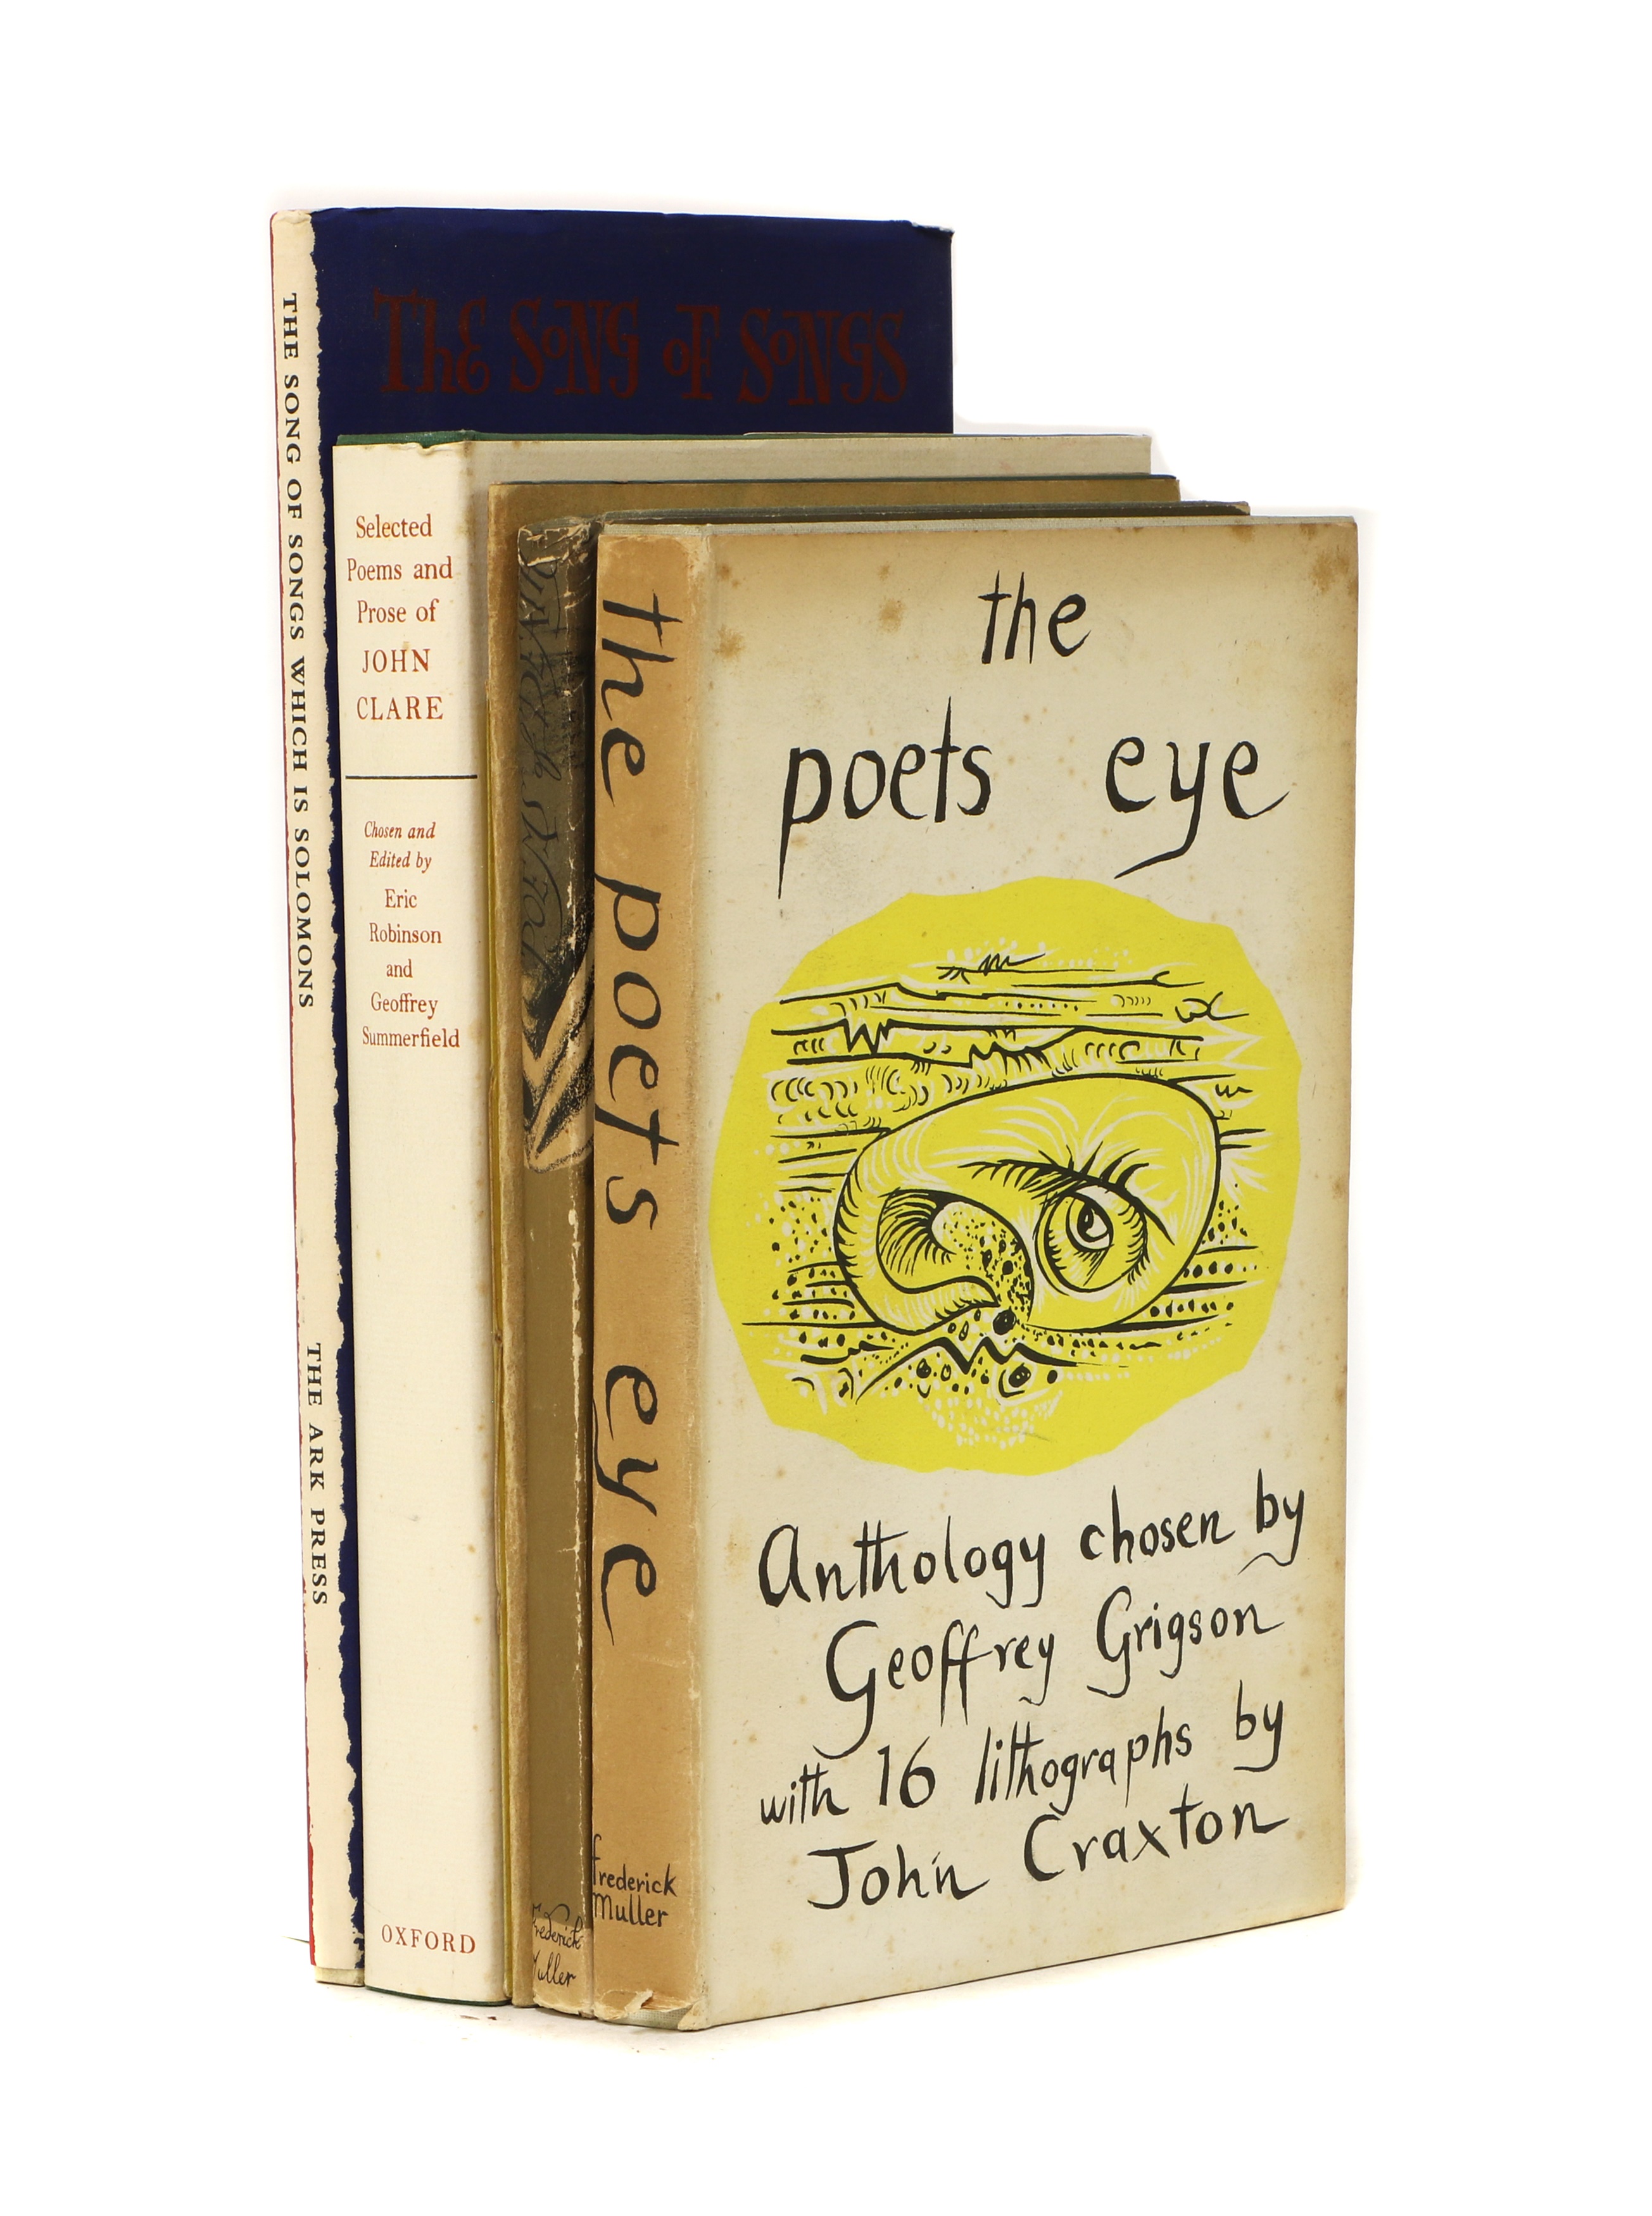 THE SONG OF SONGS WHICH IS SOLOMONS
THE ARK PRESS
The SoNG oF SoNGS
Selected
Poems and
Prose of
JOHN
CLARE
Chosen and
Edited by
Eric
Robinson
and
Geoffrey
Summerfield
OXFORD
Frederick
Muller
the poets eye
Frederick
Muller
the
poets eye
Anthology chosen by
Geoffrey Grigson
with 16 lithographs by
John Craxton